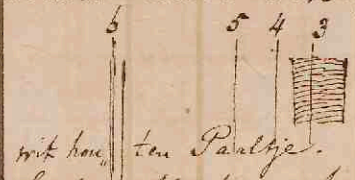 6 5 4 3
wit hou„ ten Paaltje.